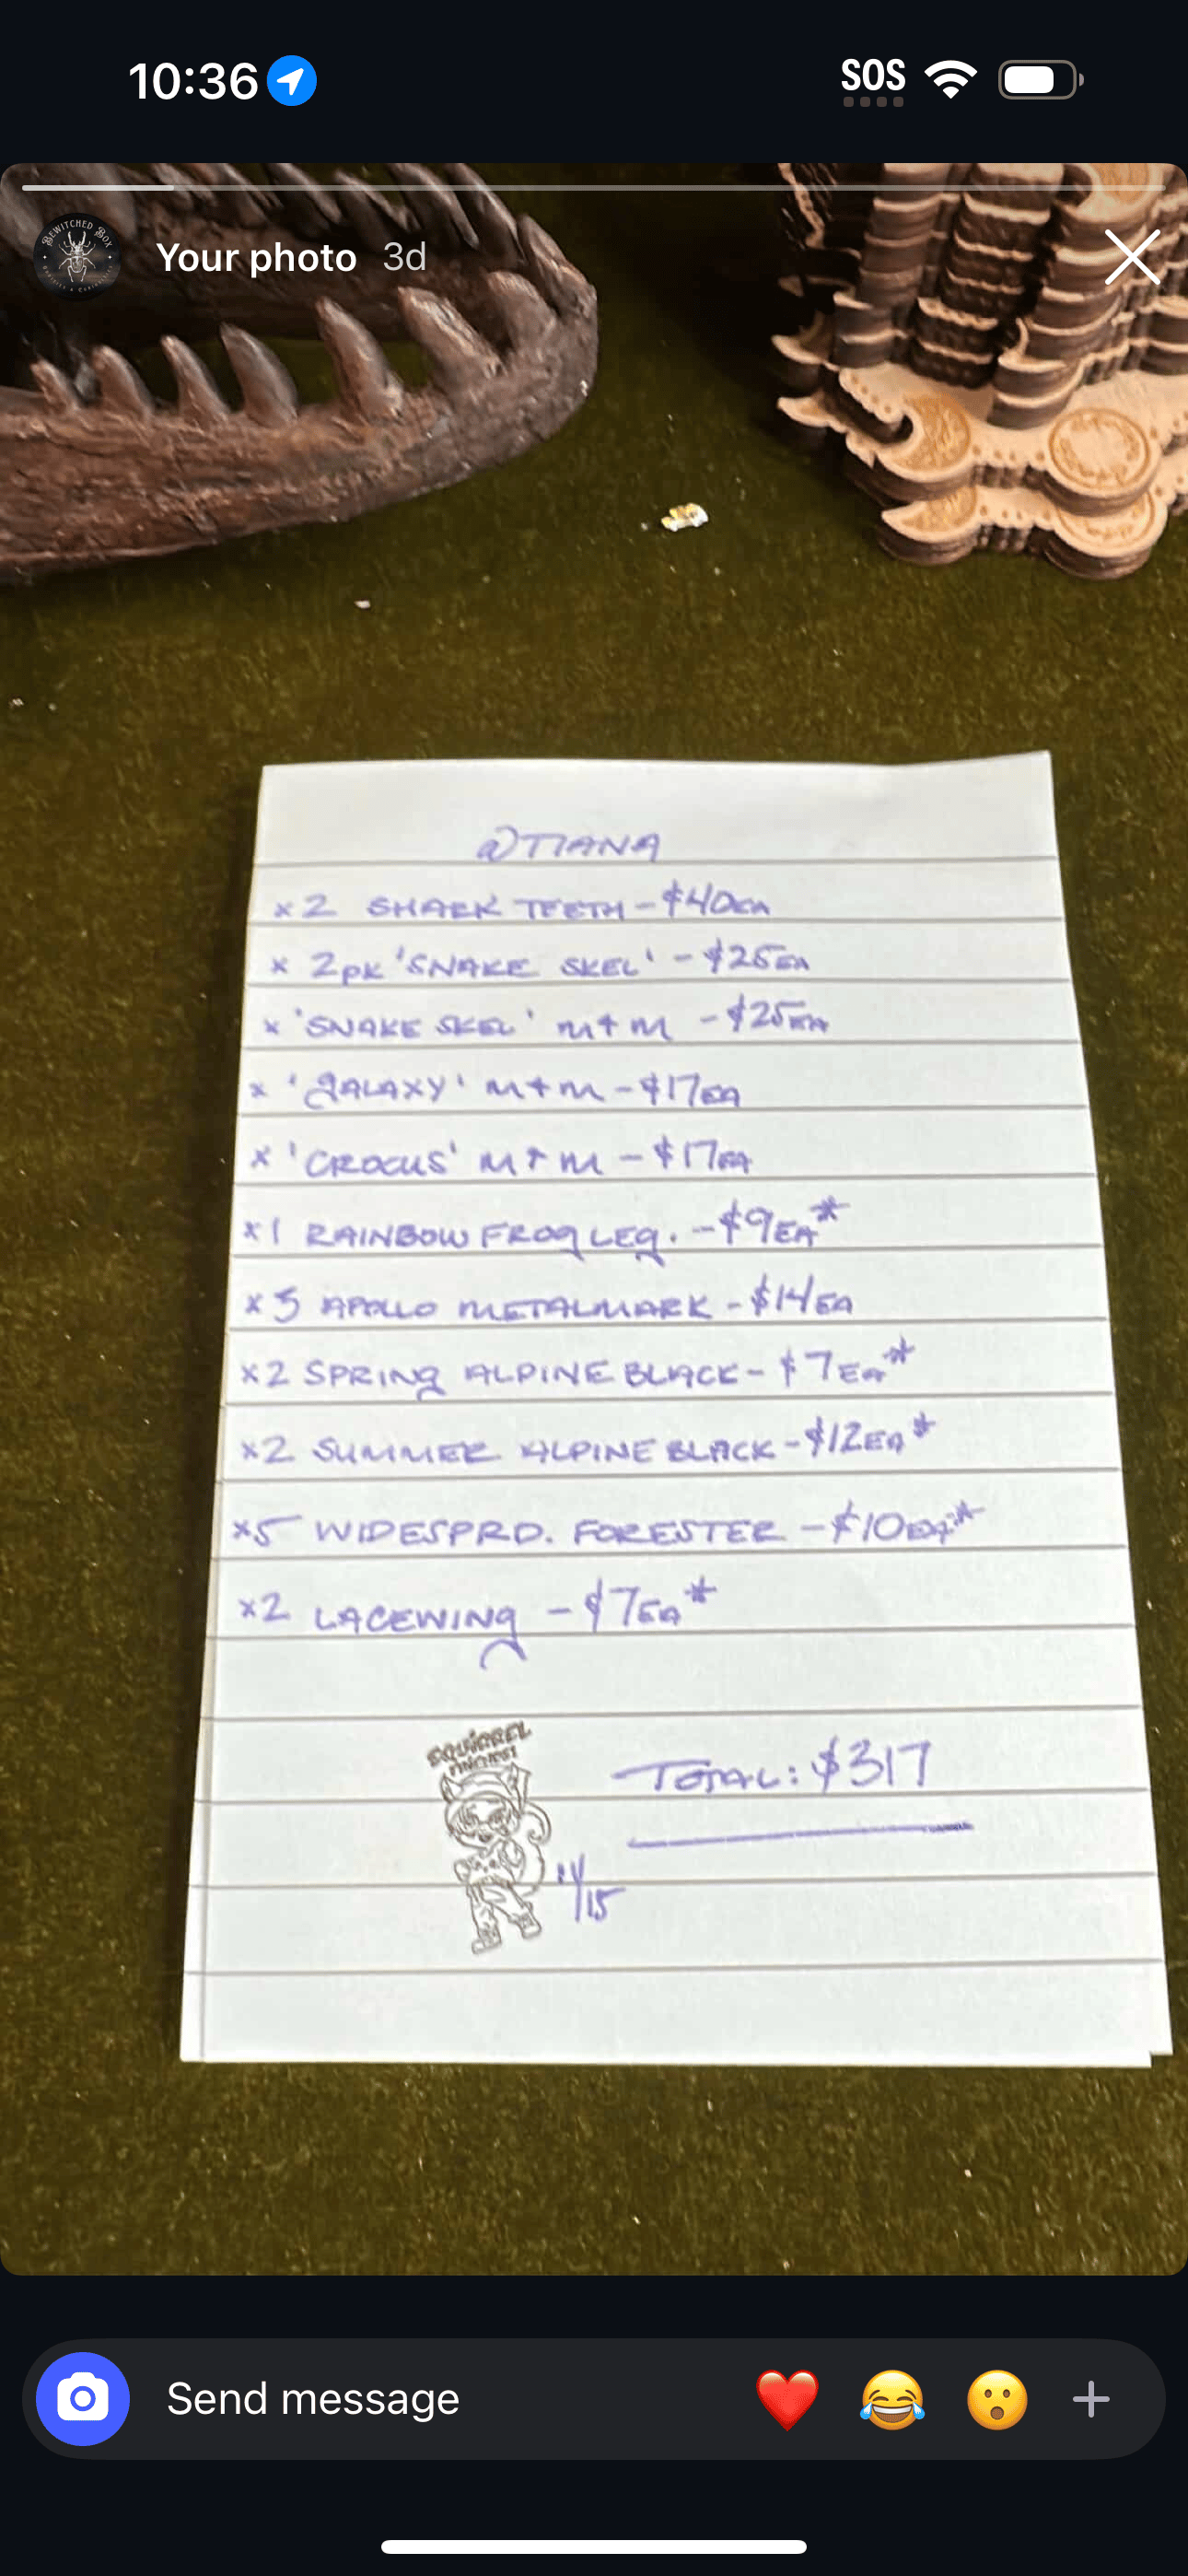 10:36
SOS
BEWITCHED BOX
Your photo 3d
@TIANA
x2 SHARK TEETH - $40EA
x 2PK 'SNAKE SKEL' - $25EA
x 'SNAKE SKEL' M+M - $25EA
x 'GALAXY' M+M - $17EA
x 'CROCUS' M+M - $17EA
x1 RAINBOW FROG LEG. - $9EA*
x3 APOLLO METALMARK - $14EA
x2 SPRING ALPINE BLACK - $7EA*
x2 SUMMER ALPINE BLACK - $12EA*
x5 WIDESPRD. FORESTER - $10EA*
x2 LACEWING - $7EA*
SQUIRREL
TOTAL: $317
11/15
Send message